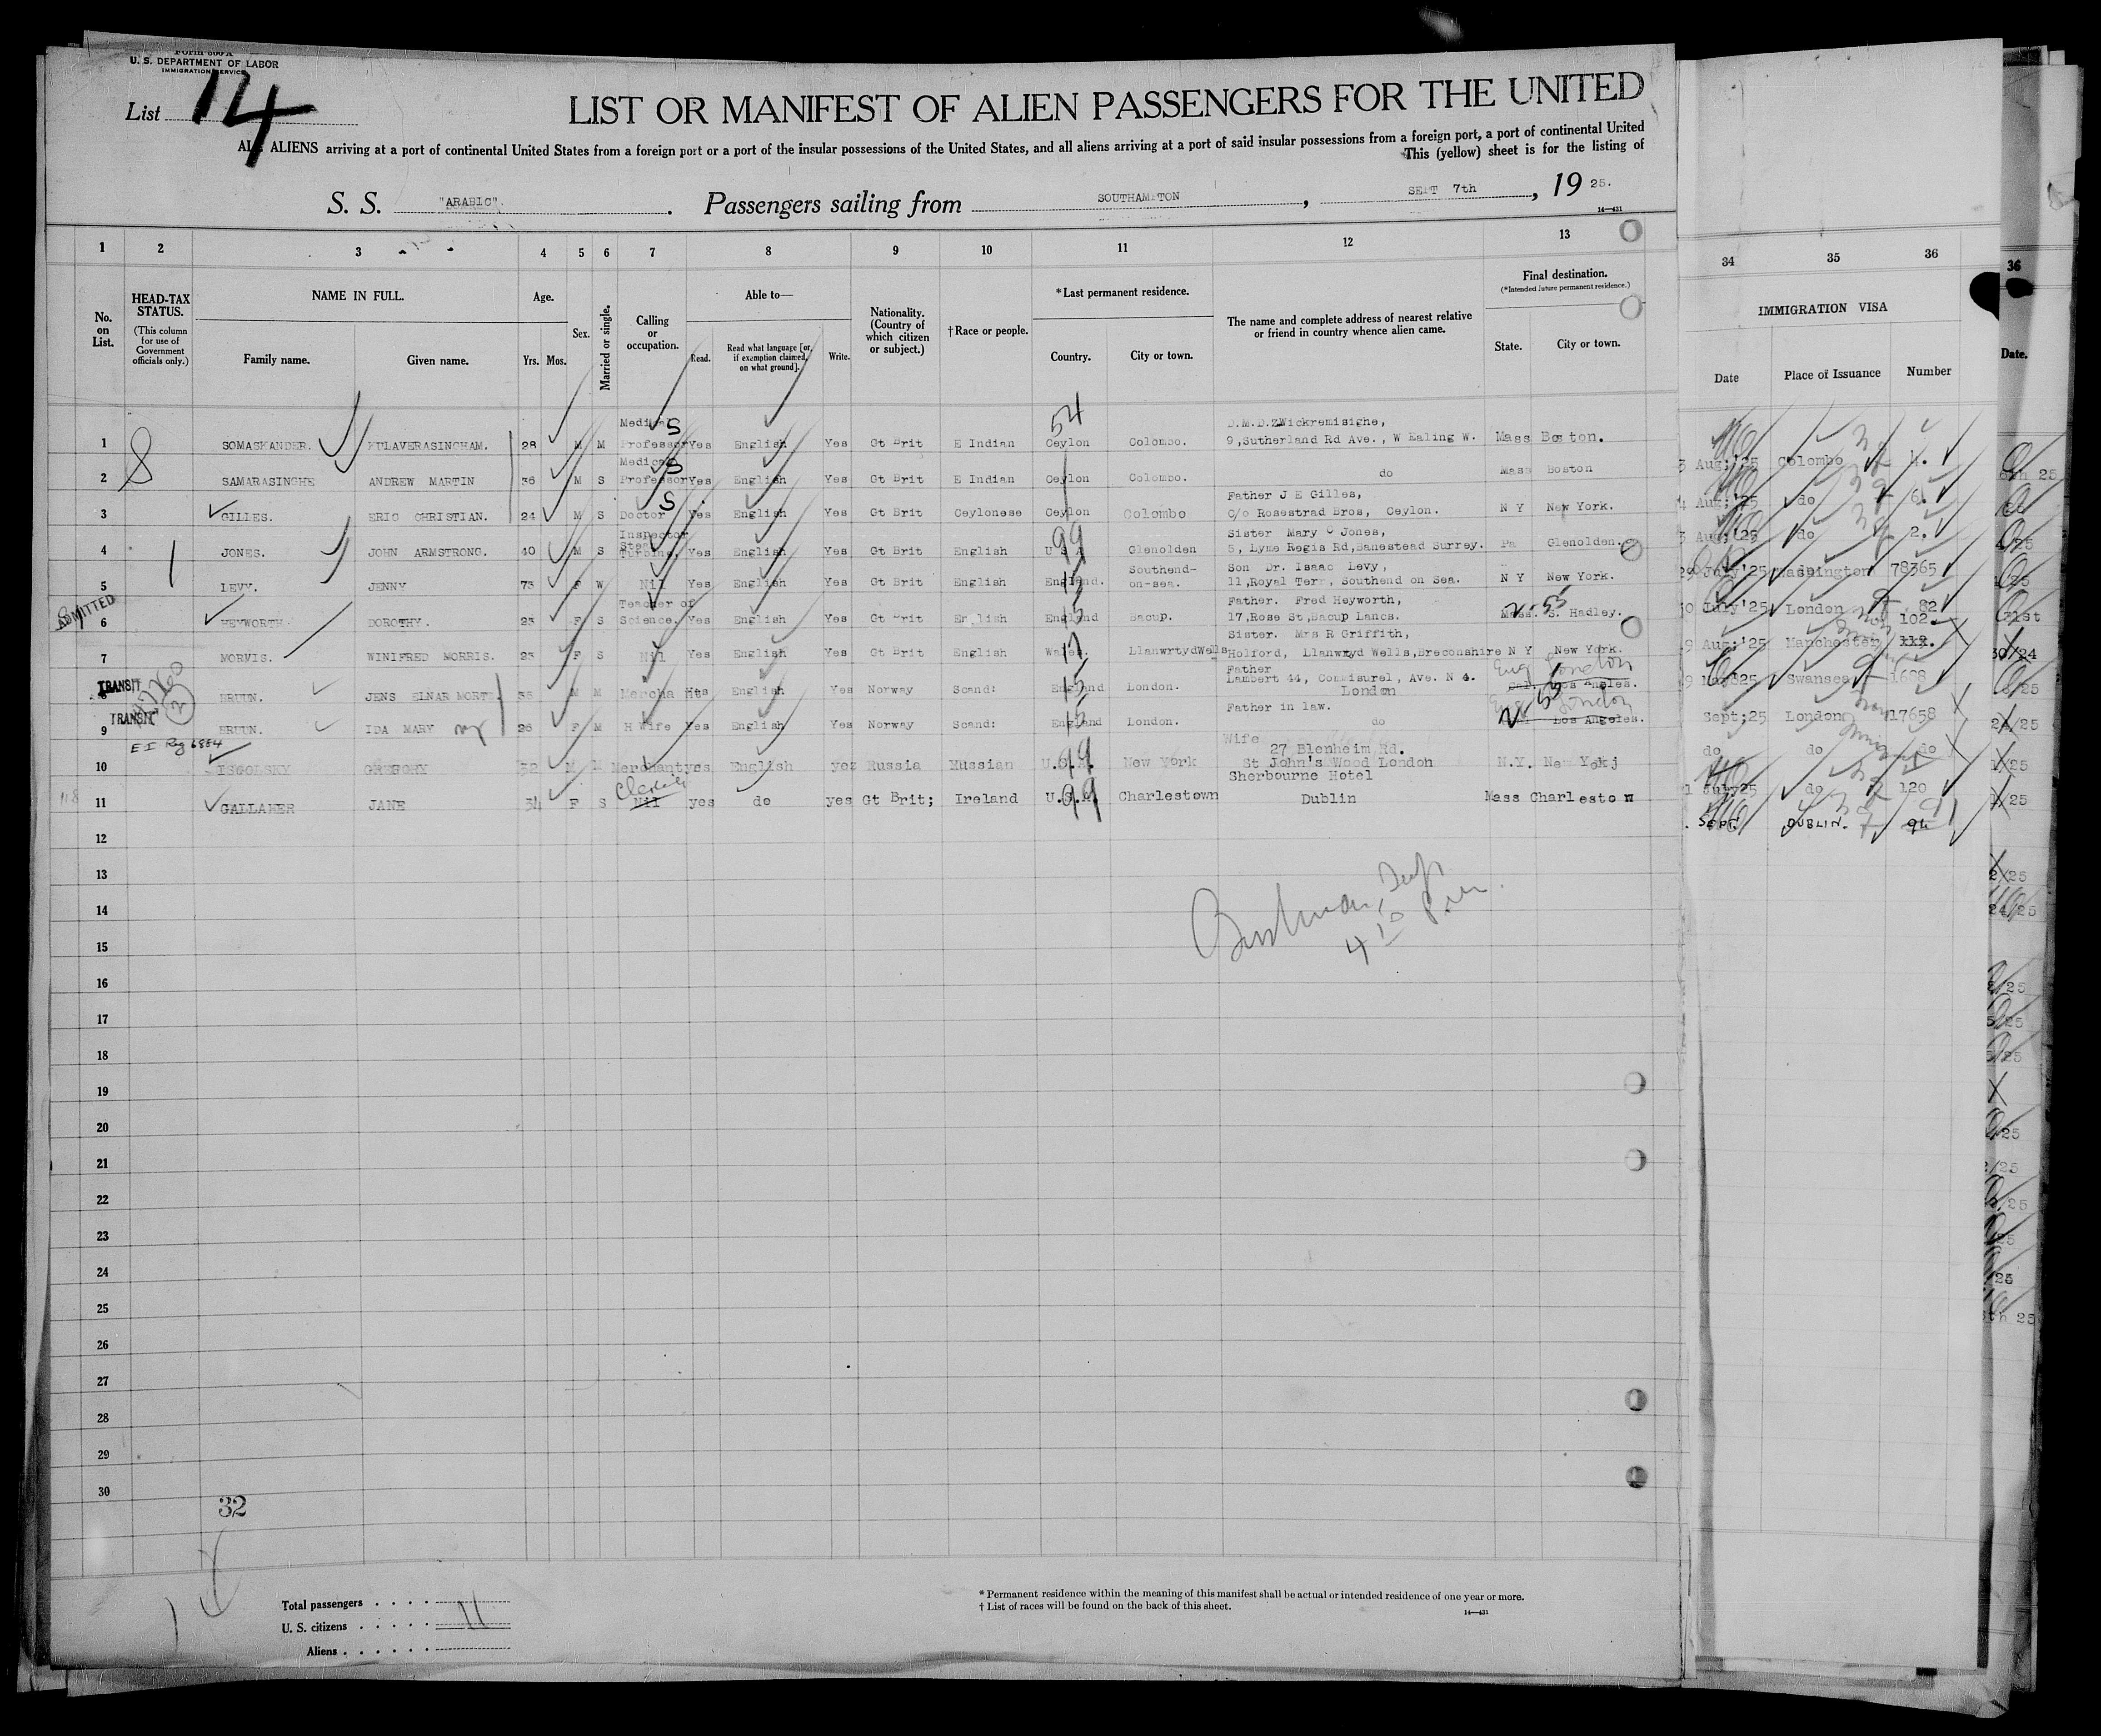 U. S. DEPARTMENT OF LABOR
IMMIGRATION SERVICE
List 14
LIST OR MANIFEST OF ALIEN PASSENGERS FOR THE UNITED
ALL ALIENS arriving at a port of continental United States from a foreign port or a port of the insular possessions of the United States, and all aliens arriving at a port of said insular possessions from a foreign port, a port of continental United
This (yellow) sheet is for the listing of
S. S. "ARABIC". Passengers sailing from SOUTHAMPTON, SEPT 7th, 19 25.
14—431
1 2 3 4 5 6 7 8 9 10 11 12 13 34 35 36
No. on List.
HEAD-TAX STATUS.
(This column for use of Government officials only.)
NAME IN FULL.
Family name. Given name.
Age.
Yrs. Mos.
Sex.
Married or single.
Calling or occupation.
Able to—
Read. Read what language [or, if exemption claimed, on what ground]. Write.
Nationality. (Country of which citizen or subject.)
†Race or people.
*Last permanent residence.
Country. City or town.
The name and complete address of nearest relative or friend in country whence alien came.
Final destination.
(*Intended future permanent residence.)
State. City or town.
IMMIGRATION VISA
Date Place of Issuance Number
36
Date.
54
1 SOMASKANDER. KULAVERASINGHAM. 28 M M Medical Professor Yes English Yes Gt Brit E Indian Ceylon Colombo. D.M.D.ZWickremisighe, 9,Sutherland Rd Ave., W Ealing W. Mass Boston. 3 Aug;'25 Colombo 4.
2 SAMARASINGHE ANDREW MARTIN 36 M S Medical Professor Yes English Yes Gt Brit E Indian Ceylon Colombo. do Mass Boston 4 Aug;'25 do 6.
3 GILLES. ERIC CHRISTIAN. 24 M S Doctor Yes English Yes Gt Brit Ceylonese Ceylon Colombo Father J E Gilles, C/o Rosestrad Bros, Ceylon. N Y New York. 3 Aug;'25 do 2.
4 JONES. JOHN ARMSTRONG. 40 M S Inspector Steam Turbine, Yes English Yes Gt Brit English U S A 99 Glenolden Sister Mary C Jones, 5, Lyme Regis Rd,Banestead Surrey. Pa Glenolden. 29 July'25 Washington 78365
5 LEVY. JENNY 73 F W Nil Yes English Yes Gt Brit English England. Southend-on-sea. Son Dr. Isaac Levy, 11,Royal Terr, Southend on Sea. N Y New York. 30 July'25 London 82
ADMITTED
6 HEYWORTH. DOROTHY. 23 F S Teacher of Science. Yes English Yes Gt Brit English England Bacup. Father. Fred Heyworth, 17,Rose St,Bacup Lancs. Mass. S. Hadley. 9 Aug:'25 Manchester 102.
7 MORVIS. WINIFRED MORRIS. 23 F S Nil Yes English Yes Gt Brit English Wales. LlanwrtydWells Sister. Mrs R Griffith, Holford, Llanwrzyd Wells,Breconshire N Y New York. Swansea 1688
TRANSIT
8 BRUUN. JENS ELNAR MORT. 35 M M Merchant Yes English Yes Norway Scand: England London. Father Lambert 44, Commisurel, Ave. N 4. London Eng London Cal. Los Angles. Sept;25 London 17658
TRANSIT
9 BRUUN. IDA MARY 26 F M H Wife Yes English Yes Norway Scand: England London. Father in law. do Eng London Los Angeles. do do do
10 ISGOLSKY GREGORY 32 M M Merchant yes English yes Russia Russian U.S.A. 99 New York Wife 27 Blenheim Rd. St John's Wood London N.Y. New Yokj 1 July25 do 120
11 GALLAHER JANE 34 F S Nil Clerical yes do yes Gt Brit; Ireland U.S.A 99 Charlestown Sherbourne Hotel Dublin Mass Charleston SEPT DUBLIN. 94
12
13
14
15
16
17
18
19
20
21
22
23
24
25
26
27
28
29
30
32
Total passengers
U. S. citizens
11
Aliens
* Permanent residence within the meaning of this manifest shall be actual or intended residence of one year or more.
† List of races will be found on the back of this sheet.
14—431